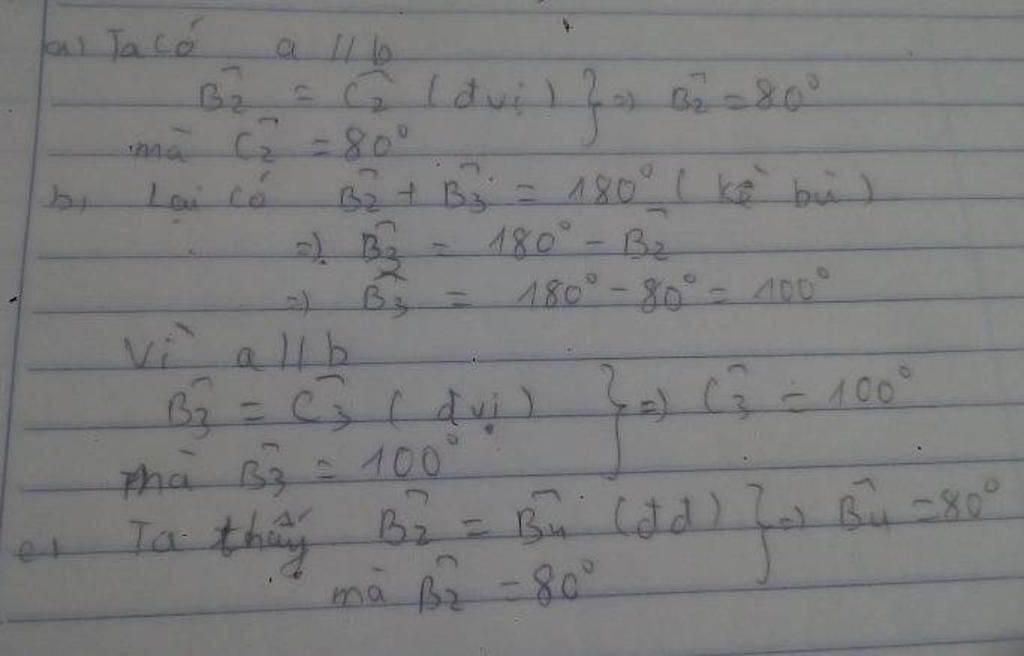 a, Ta có a // b
B̂2 = Ĉ2 (đ vị) } => B̂2 = 80°
mà Ĉ2 = 80°
b, Lại có B̂2 + B̂3 = 180° ( kề bù )
=> B̂3 = 180° - B̂2
=> B̂3 = 180° - 80° = 100°
Vì a // b
B̂3 = Ĉ3 ( đ vị ) } => Ĉ3 = 100°
mà B̂3 = 100°
c, Ta thấy B̂2 = B̂4 (đđ) } => B̂4 = 80°
mà B̂2 = 80°